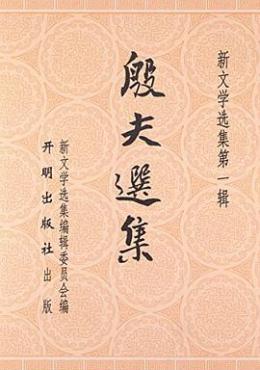 新文学选集第一辑
殷夫選集
新文学选集编辑委员会编
开明出版社出版